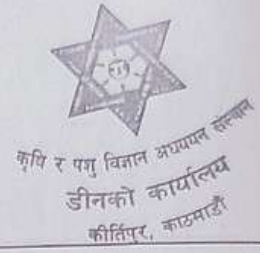 कृषि र पशु विज्ञान अध्ययन संस्थान
डीनको कार्यालय
कीर्तिपुर, काठमाडौँ